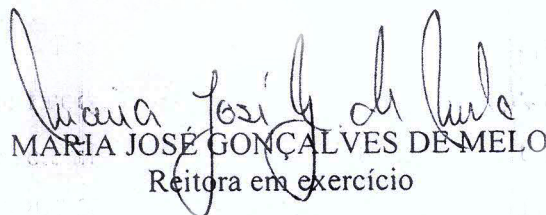 Maria José G de Melo
MARIA JOSÉ GONÇALVES DE MELO
Reitora em exercício